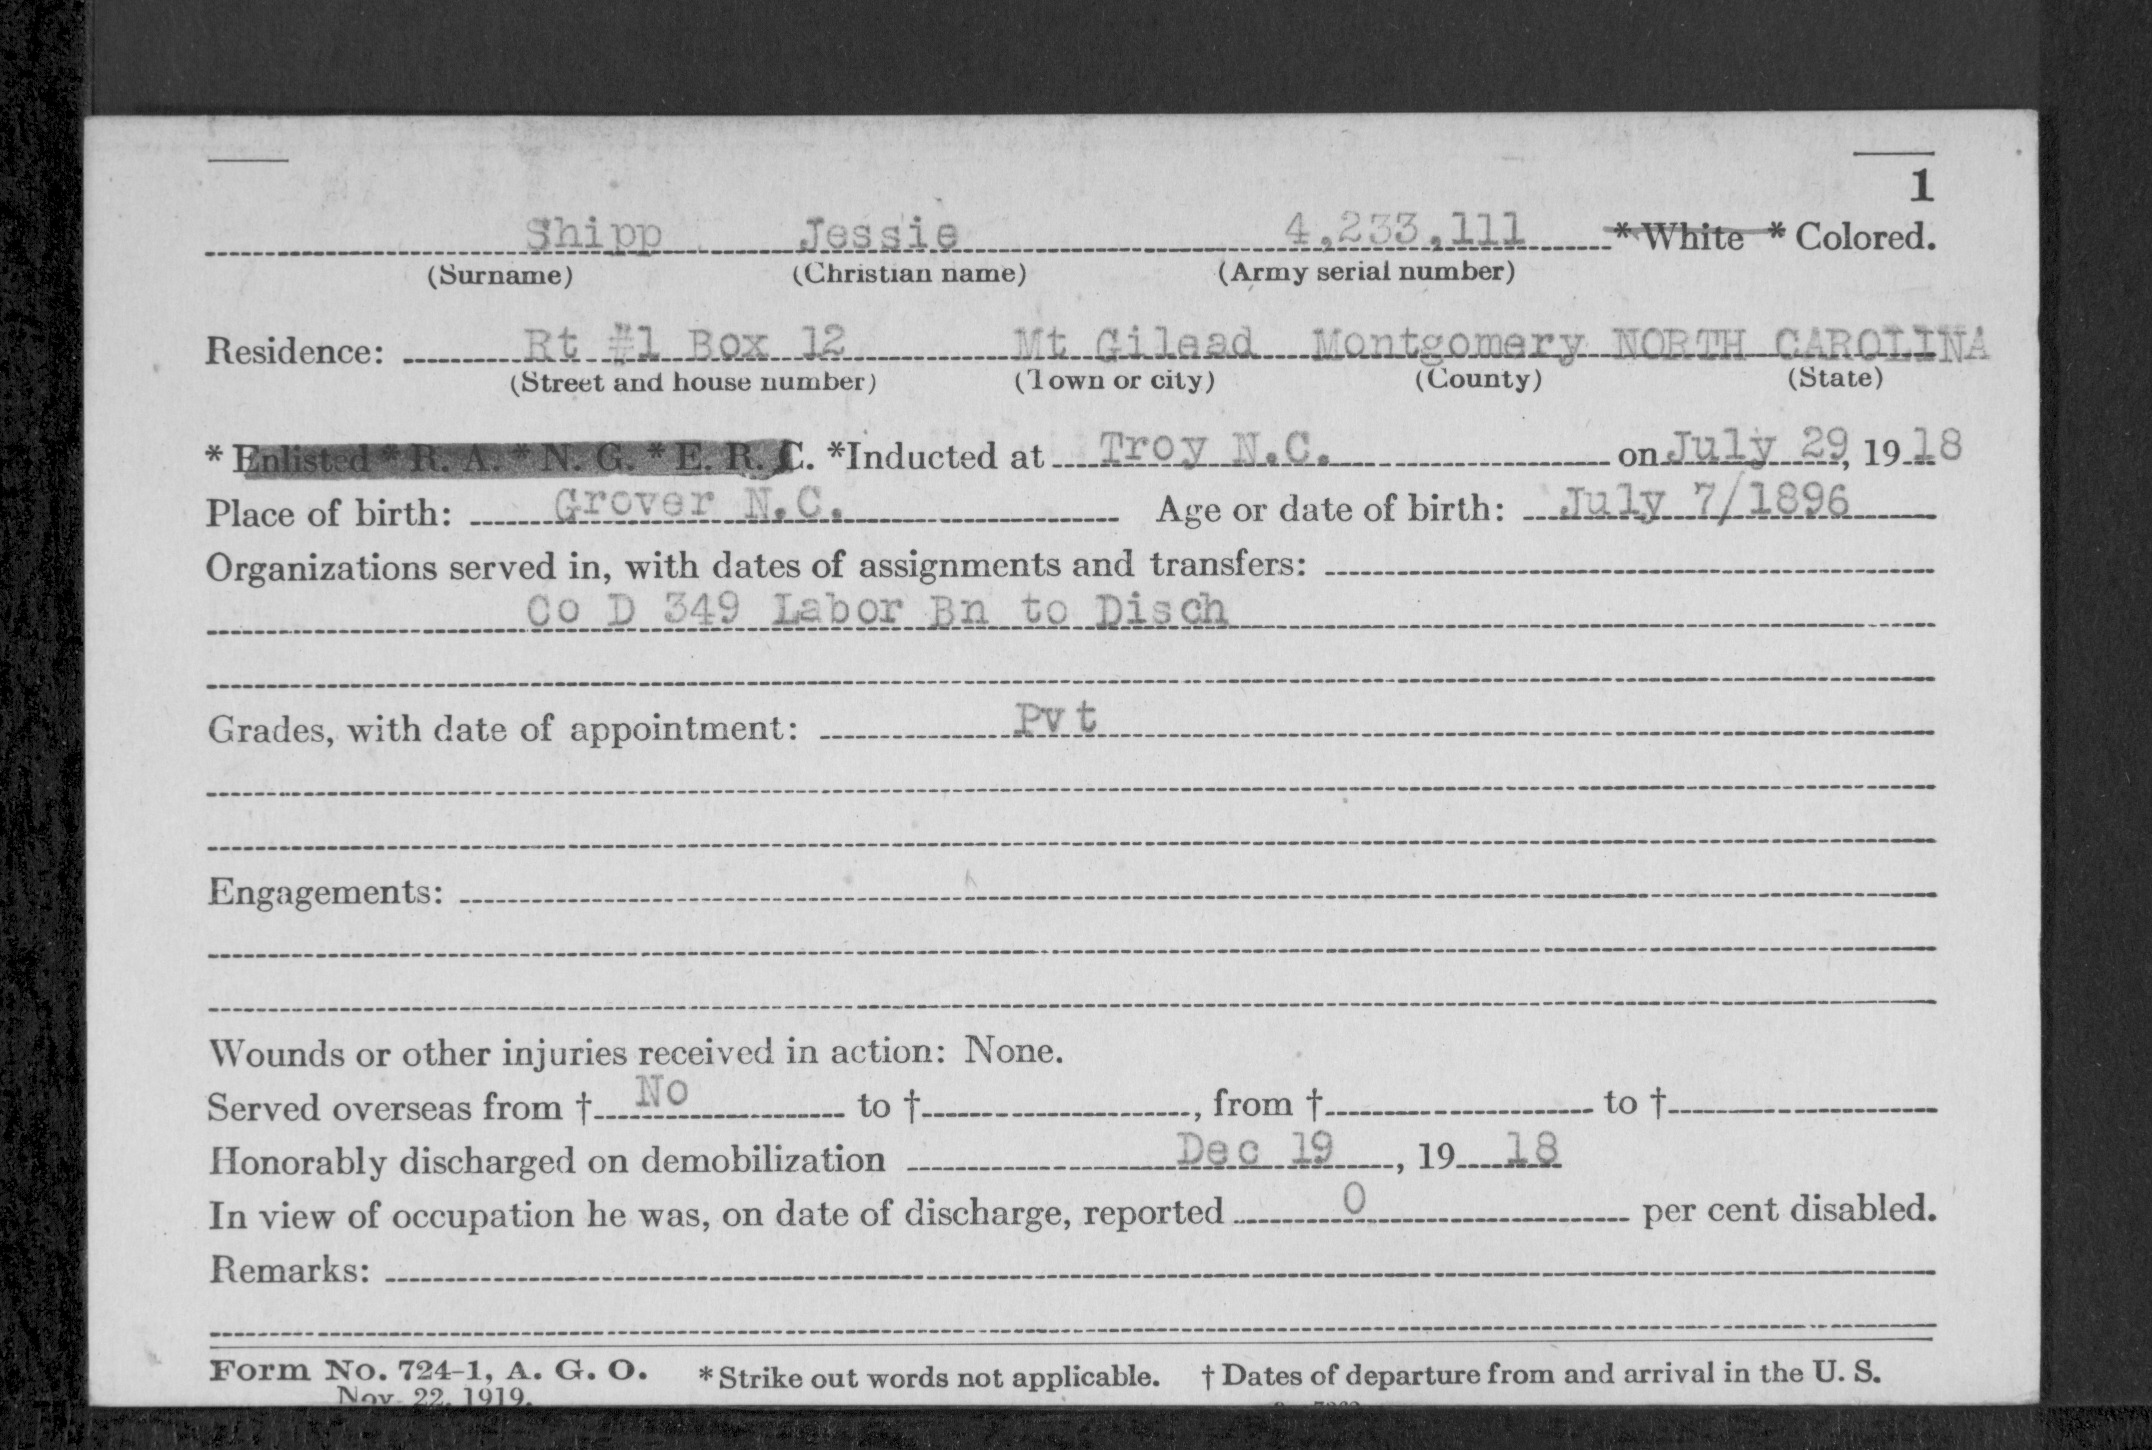 1
Shipp Jessie 4,233,111 * White * Colored.
(Surname) (Christian name) (Army serial number)
Residence: Rt #1 Box 12 Mt Gilead Montgomery NORTH CAROLINA
(Street and house number) (Town or city) (County) (State)
* Enlisted * R. A. * N. G. * E. R. C. *Inducted at Troy N.C. on July 29, 1918
Place of birth: Grover N.C. Age or date of birth: July 7/1896
Organizations served in, with dates of assignments and transfers:
Co D 349 Labor Bn to Disch
Grades, with date of appointment: Pvt
Engagements:
Wounds or other injuries received in action: None.
Served overseas from † No to †, from † to †
Honorably discharged on demobilization Dec 19, 1918
In view of occupation he was, on date of discharge, reported 0 per cent disabled.
Remarks:
Form No. 724-1, A. G. O. * Strike out words not applicable. † Dates of departure from and arrival in the U. S.
Nov. 22, 1919.